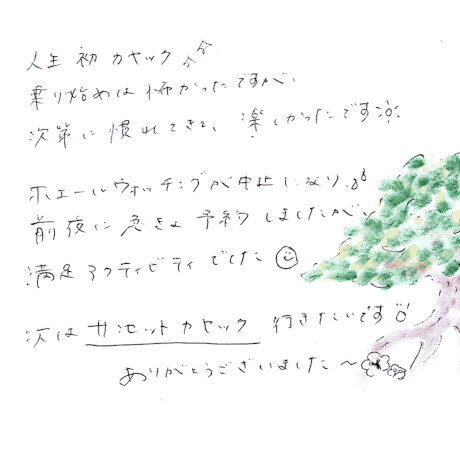 人生初カヤック
乗り始めは怖かったですが、
次第に慣れてきて、楽しかったです
ホエールウォッチングが中止になり、
前夜に急きょ予約しましたが、
満足アクティビティでした
次はサンセットカヤック行きたいです
ありがとうございました〜